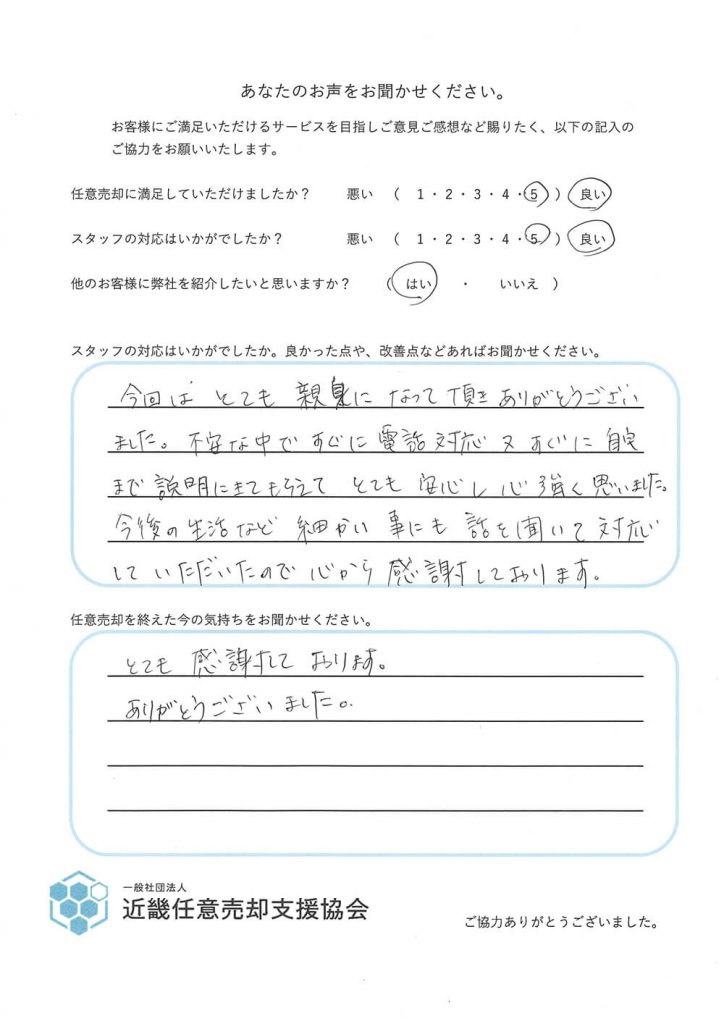 あなたのお声をお聞かせください。
お客様にご満足いただけるサービスを目指しご意見ご感想など賜りたく、以下の記入の
ご協力をお願いいたします。
任意売却に満足していただけましたか？ 悪い （ 1・2・3・4・5 ） 良い
スタッフの対応はいかがでしたか？ 悪い （ 1・2・3・4・5 ） 良い
他のお客様に弊社を紹介したいと思いますか？ （ はい ・ いいえ ）
スタッフの対応はいかがでしたか。良かった点や、改善点などあればお聞かせください。
今回は とても 親身に なって頂き ありがとうござい
ました。不安な中で すぐに 電話対応 又 すぐに 自宅
まで 説明にきてもらえて とても 安心し 心強く 思いました。
今後の生活など 細かい 事にも 話を聞いて 対応
していただいたので 心から 感謝しております。
任意売却を終えた今の気持ちをお聞かせください。
とても 感謝して おります。
ありがとうございました。
一般社団法人
近畿任意売却支援協会
ご協力ありがとうございました。